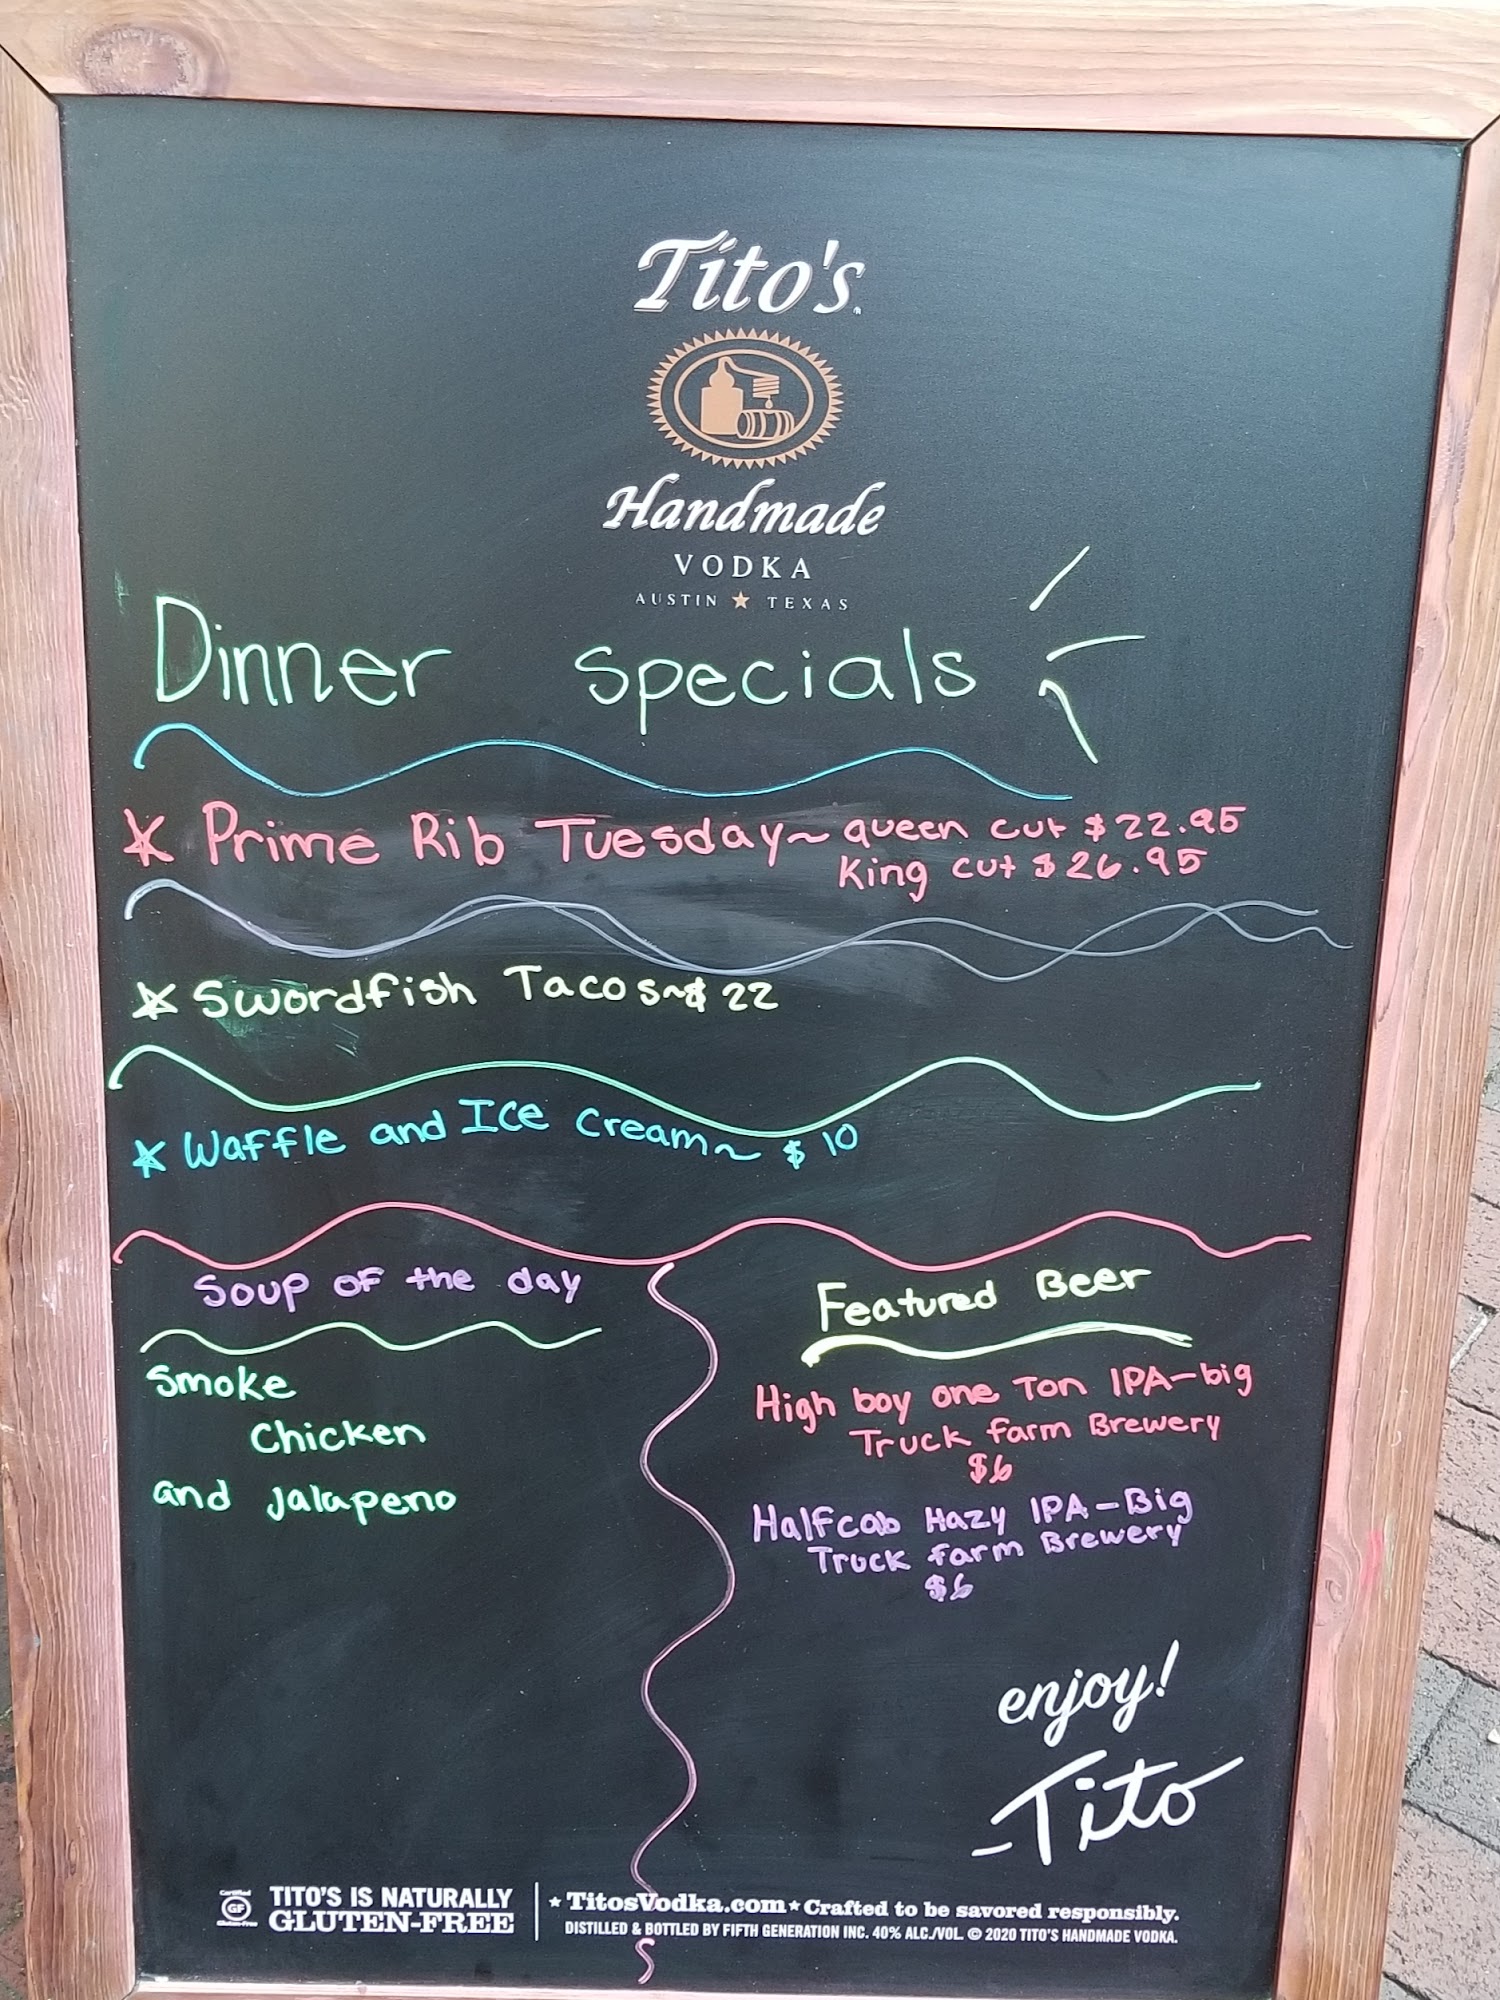 Tito's
Handmade
VODKA
AUSTIN ★ TEXAS
Dinner Specials
Prime Rib Tuesday~ queen cut $22.95
King cut $26.95
Swordfish Tacos~$22
Waffle and Ice Cream~ $10
Soup of the day
Smoke
Chicken
and jalapeno
Featured Beer
High boy one Ton IPA-big
Truck farm Brewery
$6
Halfcab Hazy IPA-Big
Truck farm Brewery
$6
enjoy!
-Tito
Certified
GF
Gluten-Free
TITO'S IS NATURALLY
GLUTEN-FREE
★ TitosVodka.com ★ Crafted to be savored responsibly.
DISTILLED & BOTTLED BY FIFTH GENERATION INC. 40% ALC./VOL. © 2020 TITO'S HANDMADE VODKA.